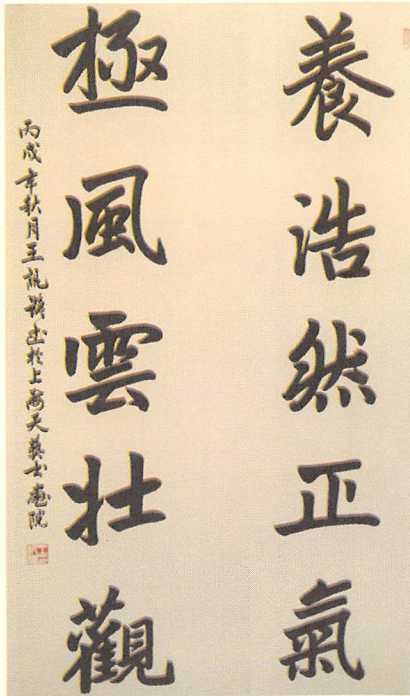 養浩然正氣
極風雲壯觀
丙戌年秋月王 書於上海天藝書畫院